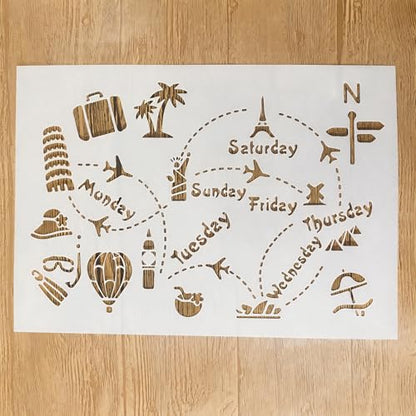 N
Saturday
Monday
Sunday
Friday
Thursday
Tuesday
Wednesday